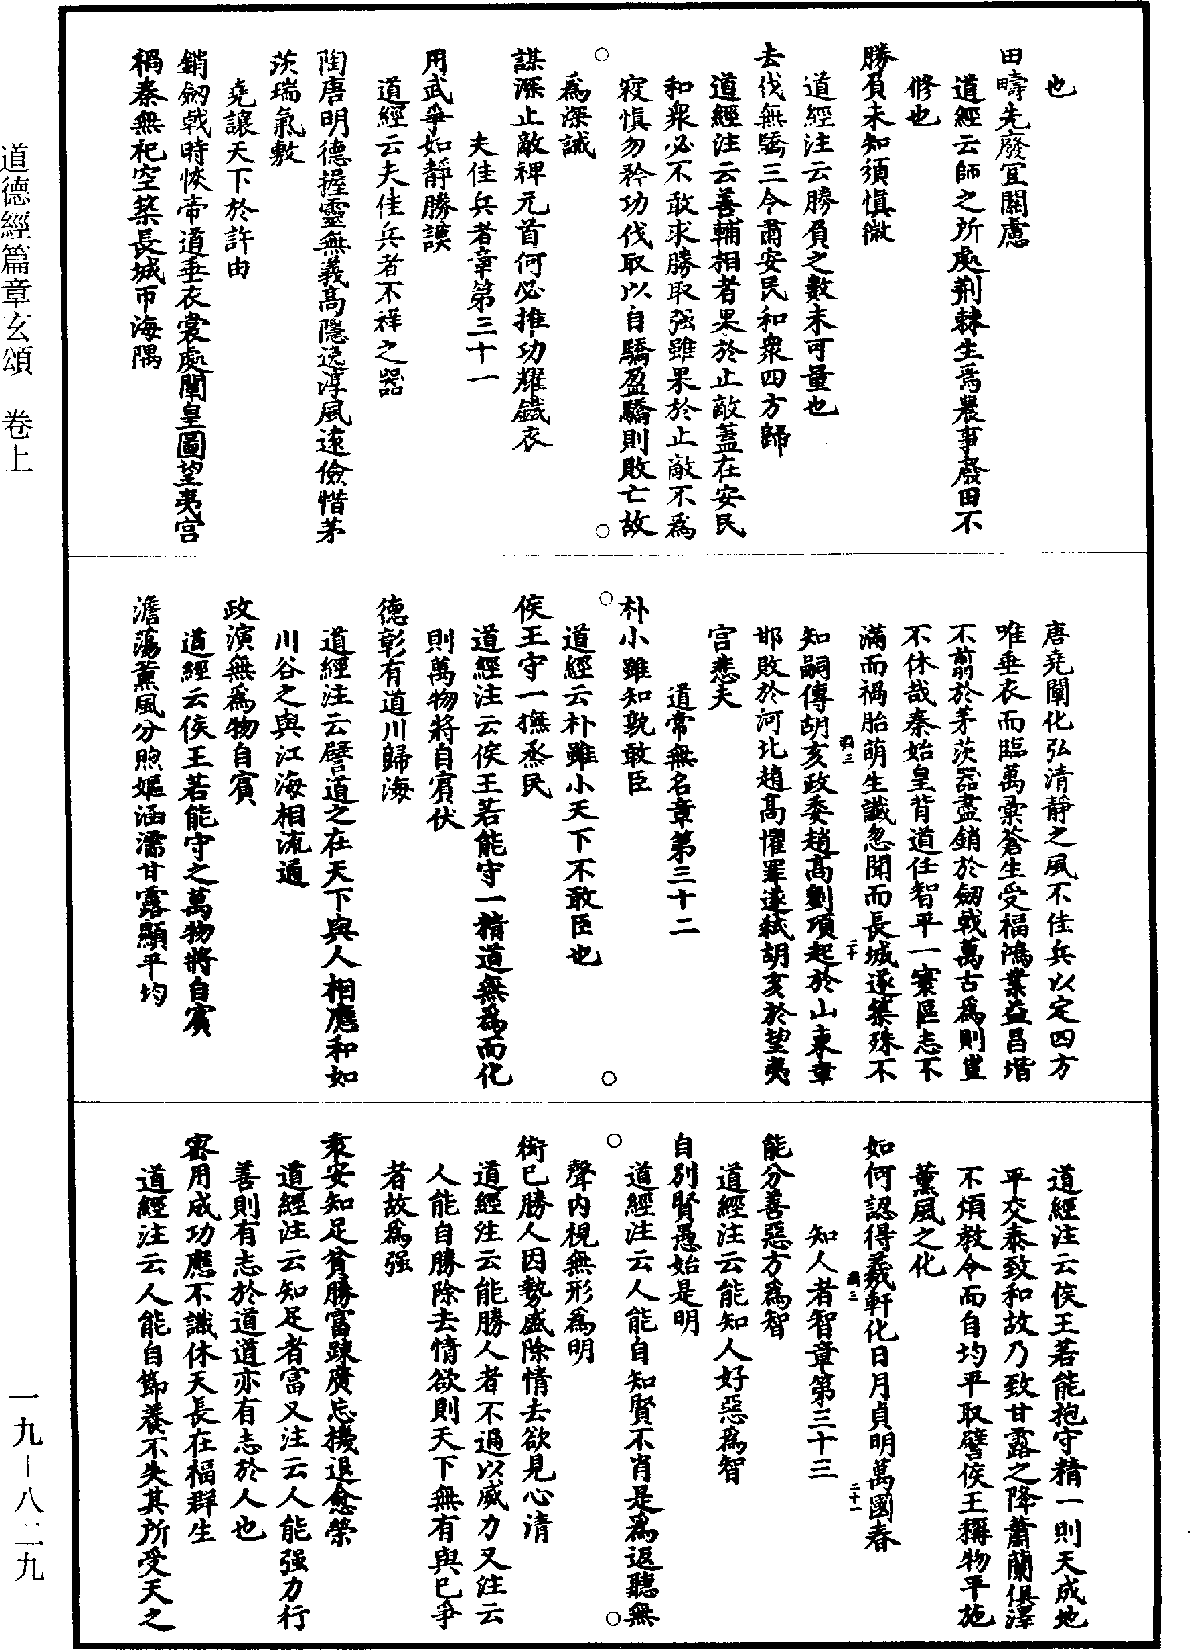 也
田疇先廢宜關慮
道經云師之所處荆棘生焉農事廢田不
修也
勝負未知須慎微
道經注云勝負之數未可量也
去伐無驕三令肅安民和衆四方歸
道經注云善輔相者果於止敵蓋在安民
和衆必不敢求勝取强雖果於止敵不爲
寇慎勿矜功伐取以自驕盈驕則敗亡故
爲深誡
謀深止敵裨元首何必推功耀鐵衣
夫佳兵者章第三十一
用武爭如靜勝謨
道經云夫佳兵者不祥之器
陶唐明德握靈無義高隱逸淳風遠儉惜茅
茨瑞氣敷
堯讓天下於許由
銷劒戟時恢帝道垂衣裳處闡皇圖望夷宫
禍秦無祀空築長城帀海隅
唐堯闡化弘清靜之風不佳兵以定四方
唯垂衣而臨萬彙蒼生受福鴻業益昌堦
不翦於茅茨器盡銷於劒戟萬古爲則豈
不休哉秦始皇背道任智平一寰區志不
滿而禍胎萌生讖忽聞而長城遂築殊不
知嗣傳胡亥政委趙高劉項起於山東章
邯敗於河北趙高懼罪遂弒胡亥於望夷
宫悲夫
道常無名章第三十二
朴小雖知孰敢臣
道經云朴雖小天下不敢臣也
侯王守一撫烝民
道經注云侯王若能守一精道無爲而化
則萬物將自賓伏
德彰有道川歸海
道經注云譬道之在天下與人相應和如
川谷之與江海相流通
政演無爲物自賓
道經云侯王若能守之萬物將自賓
澹蕩薰風分煦嫗涵濡甘露顯平均
道經注云侯王若能抱守精一則天成地
平交泰致和故乃致甘露之降蕭蘭俱澤
不煩教令而自均平取譬侯王稱物平施
薰風之化
如何認得羲軒化日月貞明萬國春
知人者智章第三十三
能分善惡方爲智
道經注云能知人好惡爲智
自别賢愚始是明
道經注云人能自知賢不肖是爲返聽無
聲内視無形爲明
衒已勝人因勢盛除情去欲見心清
道經注云能勝人者不過以威力又注云
人能自勝除去情欲則天下無有與已爭
者故爲强
衷安知足貧勝富踈廣忘機退愈榮
道經注云知足者富又注云人能强力行
善則有志於道道亦有志於人也
密用成功應不識休天長在福群生
道經注云人能自節養不失其所受天之
道德經篇章玄頌　卷上
一九－八二九